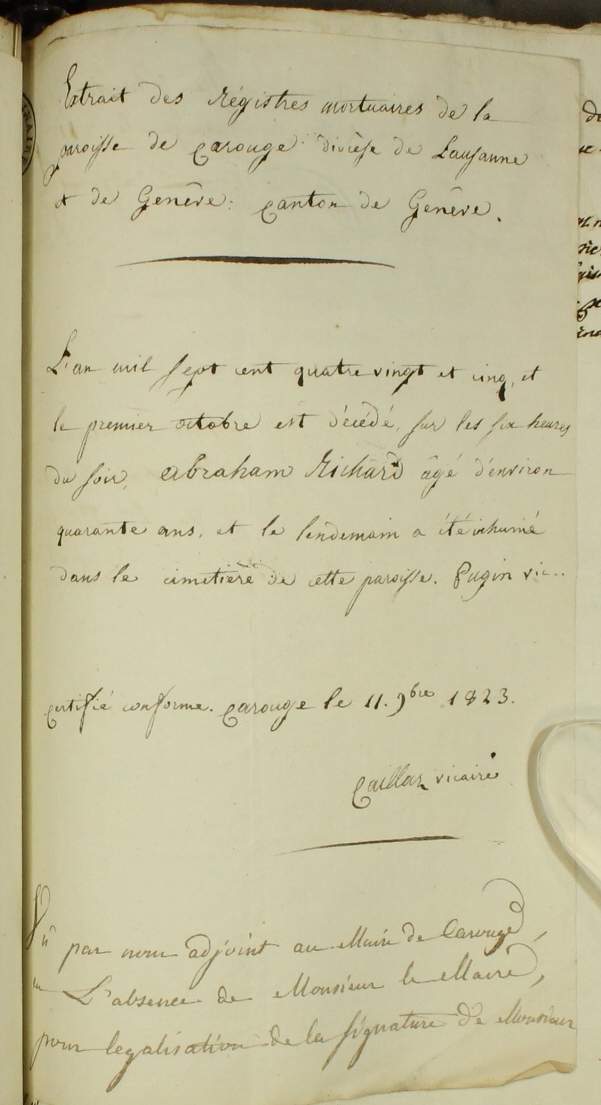 Extrait des Régistres mortuaires de la
paroisse de Carouge diocèse de Lausanne
et de Genêve: Canton de Genêve.
L'an mil sept cent quatre vingt et cinq, et
le premier octobre est décédé, sur les six heures
du soir, Abraham Richard âgé d'environ
quarante ans, et le lendemain a été inhumé
dans le cimetière de cette paroisse. Pugin vic..
Certifié conforme. Carouge le 11. 9bre 1823.
vicaire
Vu par nous adjoint au Maire de Carouge,
L'absence de Monsieur le Maire,
pour legalisation de la signature de Monsieur